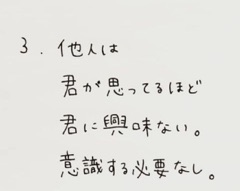 3. 他人は
君が思ってるほど
君に興味ない。
意識する必要なし。